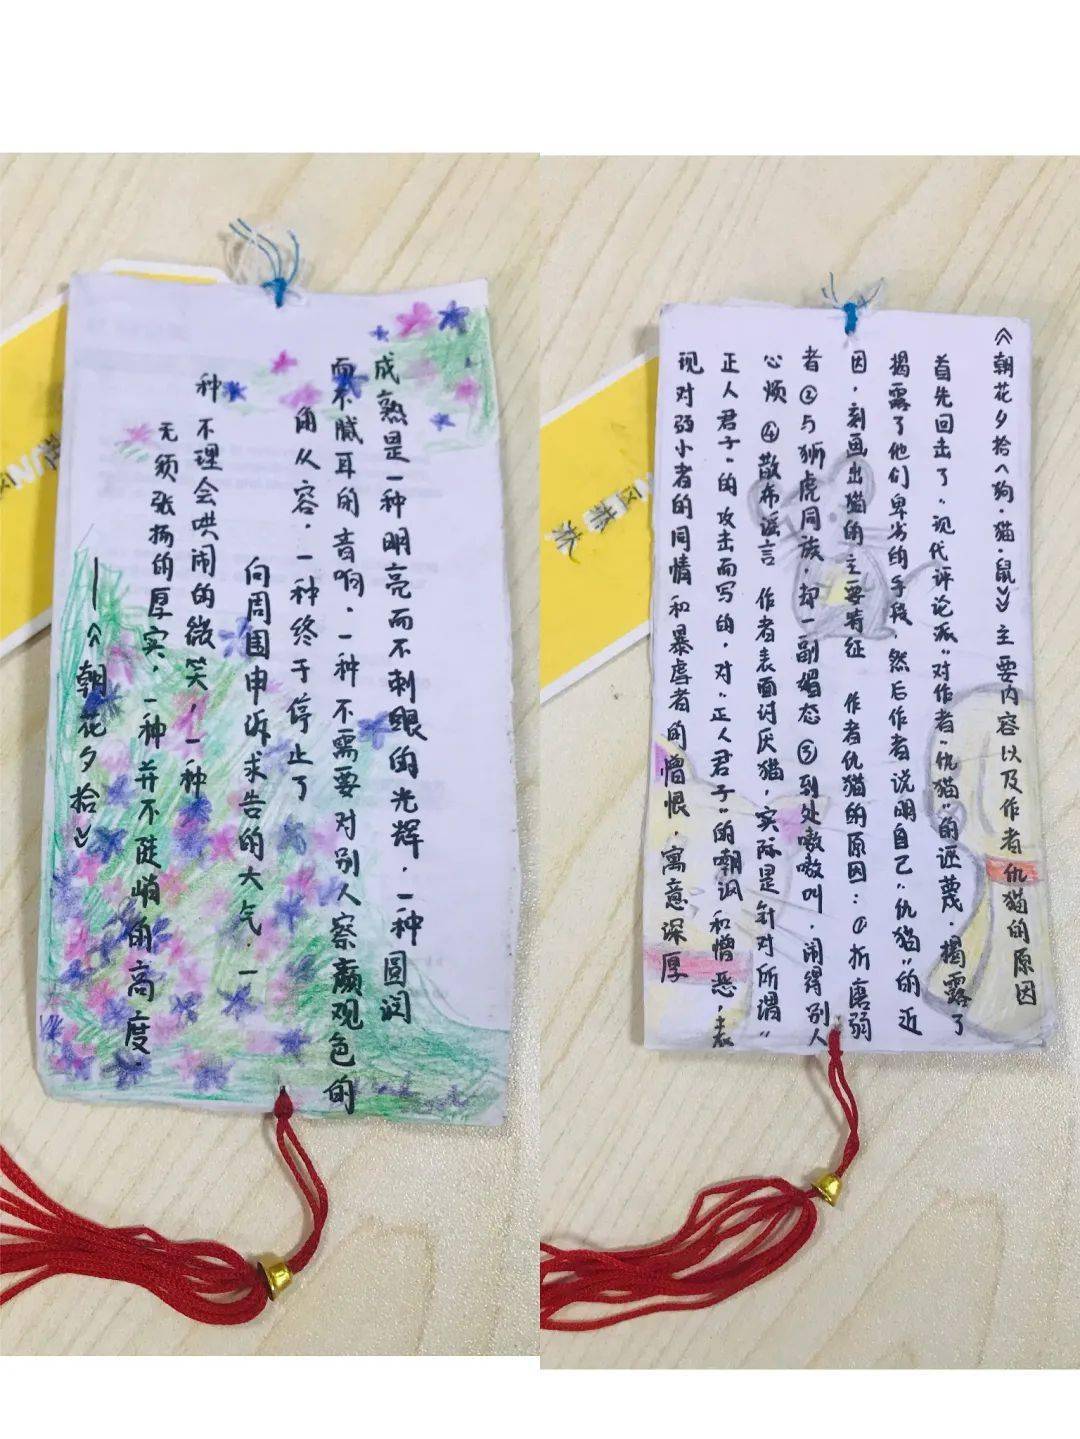 成熟是一种明亮而不刺眼的光辉，一种圆润
而不腻耳的音响，一种不需要对别人察颜观色的
角从容，一种终于停止了
向周围申诉求告的大气，一
种不理会哄闹的微笑，一种
无须张扬的厚实，一种并不陡峭的高度
——《朝花夕拾》
《朝花夕拾〈狗·猫·鼠》主要内容以及作者仇猫的原因
首先回击了“现代评论派”对作者“仇猫”的诬蔑，揭露了
揭露了他们卑劣的手段，然后作者说明自己“仇猫”的近
因，刻画出猫的主要特征 作者仇猫的原因：①折磨弱
者②与狮虎同族，却一副媚态③到处嗷嗷叫，闹得别人
心烦 ④散布谣言 作者表面讨厌猫，实际是针对所谓“
正人君子”的攻击而写的，对“正人君子”的嘲讽和憎恶，表
现对弱小者的同情和暴虐者的憎恨，寓意深厚